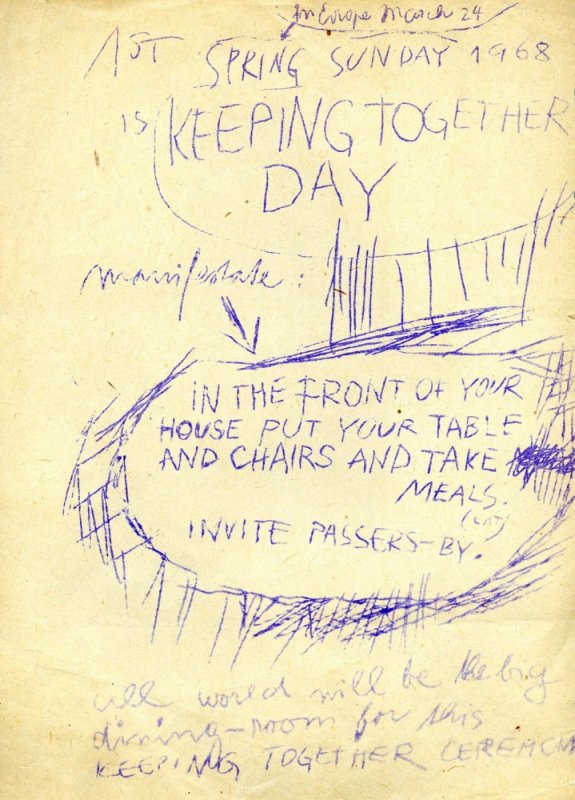 In Europe March 24
1ST SPRING SUNDAY 1968
IS KEEPING TOGETHER
DAY
manifestate:
IN THE FRONT OF YOUR
HOUSE PUT YOUR TABLE
AND CHAIRS AND TAKE
MEALS.
INVITE PASSERS-BY.
all world will be the big
dining-room for this
KEEPING TOGETHER